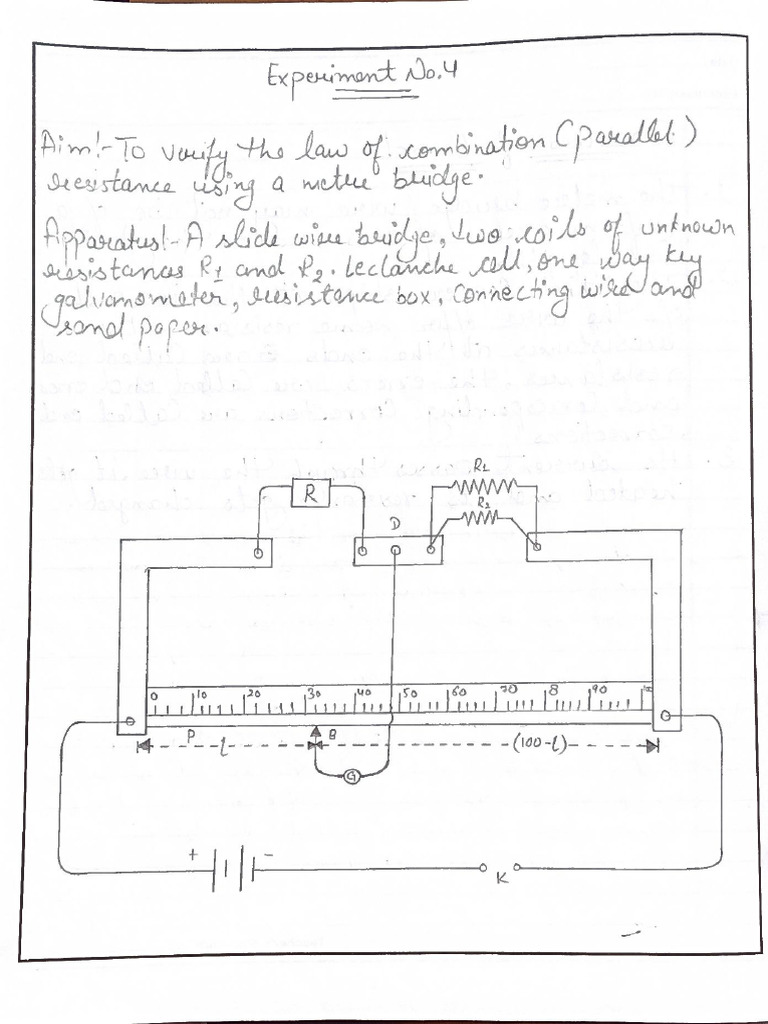 Experiment No.4
Aim:- To verify the law of combination (parallel)
resistance using a metre bridge.
Apparatus:- A slide wire bridge, two coils of unknown
resistances R1 and R2. Leclanche cell, one way key
galvanometer, resistance box, connecting wire and
sand paper.
R1
R R2
D
0 10 20 30 40 50 60 70 8 90
P l B (100-l)
G
+ -
K